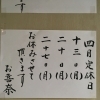 四月定休日
十三日(月)
二十日(月)
二十七日(月)
お休みさせて
頂きます
お喜奈